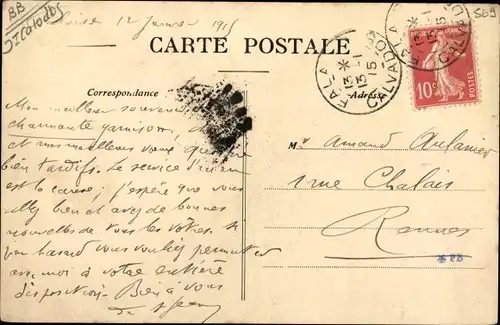 BB
569
12 Janvier 1915
CARTE POSTALE
Correspondance
Adresse
FALAISE
13 - 1
15
CALVADOS
FALAISE
13 - 1
15
CALVADOS
10c
POSTES
Mon meilleur souvenir
charmante garnison,
et mes meilleurs vœux
bien tardifs. Le service d'
est le ; j'espère que vous
allez bien et avez de bonnes
nouvelles de tous les vôtres. Si
par hasard vous vouliez permuter
moi à votre entière
disposition. Bien à vous
de
Mr Amand Aulanier
1 rue Chalais
Rennes